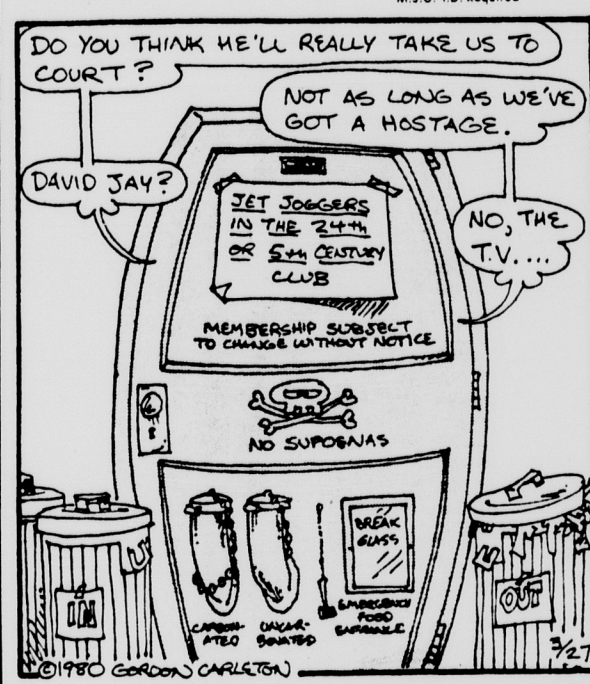 DO YOU THINK HE'LL REALLY TAKE US TO
COURT?
NOT AS LONG AS WE'VE
GOT A HOSTAGE.
DAVID JAY?
NO, THE
T.V. ...
JET JOGGERS
IN THE 24th
OR 5th CENTURY
CLUB
MEMBERSHIP SUBJECT
TO CHANGE WITHOUT NOTICE
NO SUPOENAS
BREAK
GLASS
CARBON-
ATED
UNCAR-
BONATED
EMERGENCY
FOOD
ENTRANCE
IN
OUT
3/27
©1980 GORDON CARLETON